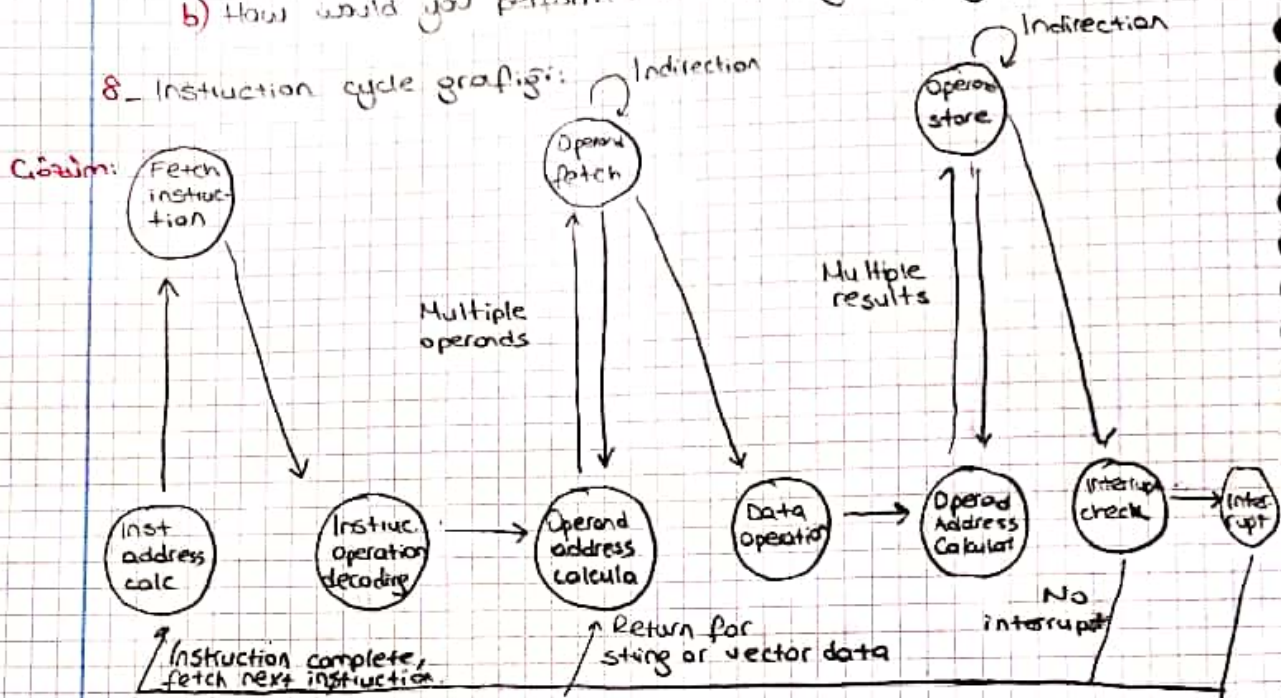 b) How would you
8_ Instruction cycle grafiği:
Çözüm:
Fetch
instruc-
tion
Indirection
Operand
fetch
Indirection
Operand
store
Multiple
operands
Multiple
results
Inst
address
calc
Instruc.
operation
decoding
Operand
address
calcula
Data
operation
Operad
Address
Calculat
Interrupt
check
Inter-
rupt
No
interrupt
Instruction complete,
fetch next instruction.
Return for
sting or vector data